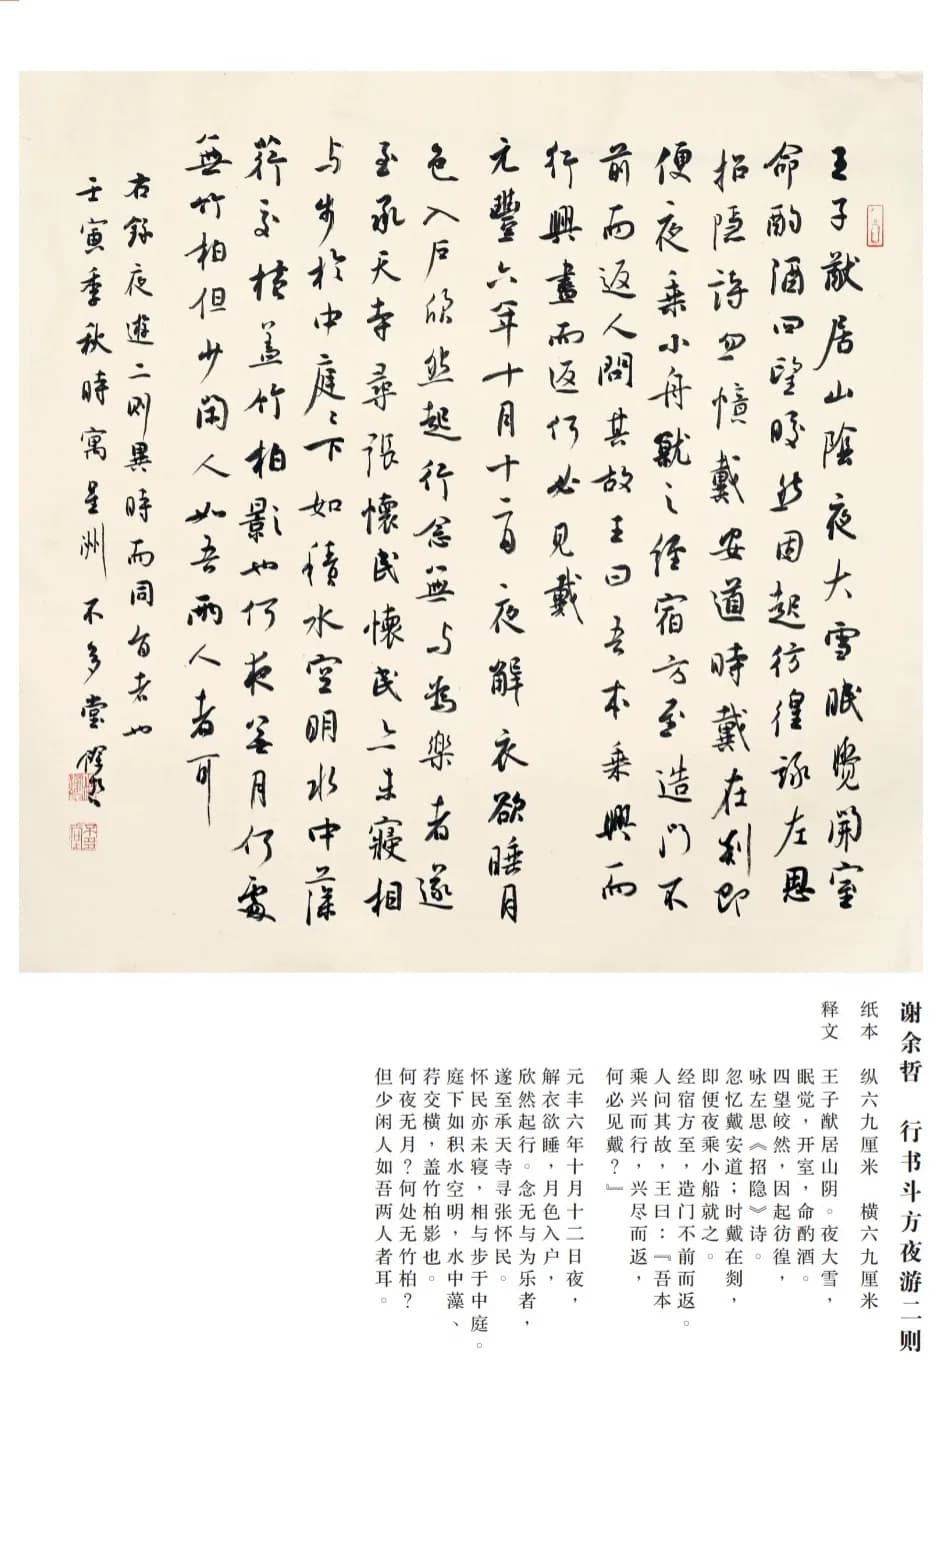 王子猷居山陰夜大雪眠覺開室
命酌酒四望皎然因起彷徨詠左思
招隱詩忽憶戴安道時戴在剡即
便夜乘小舟就之經宿方至造門不
前而返人問其故王曰吾本乘興而
行興盡而返何必見戴
元豐六年十月十二日夜解衣欲睡月
色入戶欣然起行念無与為樂者遂
至承天寺尋張懷民懷民亦未寢相
与步於中庭〻下如積水空明水中藻
荇交橫蓋竹柏影也何夜無月何處
無竹柏但少閑人如吾兩人者耳
右錄夜遊二則異時而同旨者也
壬寅季秋時寓星洲 不多堂
谢余哲 行书斗方夜游二则
纸本 纵六九厘米 横六九厘米
释文 王子猷居山阴。夜大雪，
眠觉，开室，命酌酒。
四望皎然，因起彷徨，
咏左思《招隐》诗。
忽忆戴安道；时戴在剡，
即便夜乘小船就之。
经宿方至，造门不前而返。
人问其故，王曰：『吾本
乘兴而行，兴尽而返，
何必见戴？』
元丰六年十月十二日夜，
解衣欲睡，月色入户，
欣然起行。念无与为乐者，
遂至承天寺寻张怀民。
怀民亦未寝，相与步于中庭。
庭下如积水空明，水中藻、
荇交横，盖竹柏影也。
何夜无月？何处无竹柏？
但少闲人如吾两人者耳。